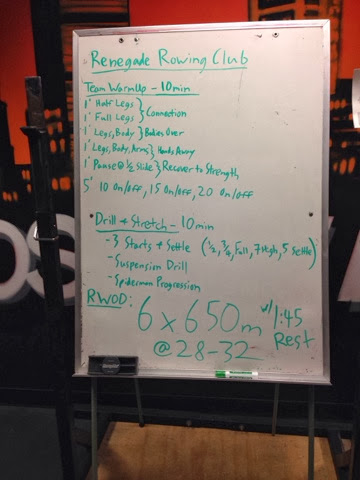 Renegade Rowing Club
Team WarmUp - 10min
1' Half Legs
1' Full Legs } Connection
1' Legs, Body } Bodies Over
1' Legs, Body, Arms } Hands Away
1' Pause @ 1/2 Slide } Recover to Strength
5' 10 On/Off, 15 On/Off, 20 On/Off
Drill + Stretch - 10min
- 3 Starts + Settle (1/2, 3/4, Full, 7 High, 5 Settle)
- Suspension Drill
- Spiderman Progression
RWOD:
6 x 650m w/ 1:45 Rest
@ 28-32